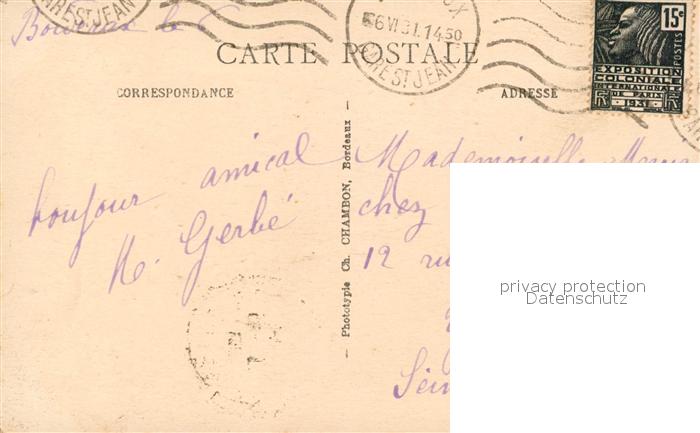 Bordeaux le 6
GARE ST JEAN
CARTE POSTALE
6 VI 31. 1450
GARE ST JEAN
15c
POSTES
EXPOSITION
COLONIALE
INTERNATIONALE
DE PARIS
1931
CORRESPONDANCE
ADRESSE
bonjour amical
M. Gerbé
Phototypie Ch. CHAMBON, Bordeaux
Mademoiselle
chez
12 ru
privacy protection
Datenschutz
Sein